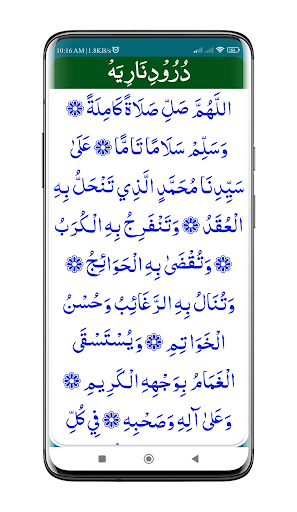 10:16 AM | 1.8KB/s
دُرُودِنَارِيَهُ
اللَّهُمَّ صَلِّ صَلَاةً كَامِلَةً
وَسَلِّمْ سَلَامًا تَامًّا عَلَىٰ
سَيِّدِنَا مُحَمَّدٍ الَّذِي تَنْحَلُّ بِهِ
الْعُقَدُ وَتَنْفَرِجُ بِهِ الْكُرَبُ
وَتُقْضَىٰ بِهِ الْحَوَائِجُ
وَتُنَالُ بِهِ الرَّغَائِبُ وَحُسْنُ
الْخَوَاتِمِ وَيُسْتَسْقَى
الْغَمَامُ بِوَجْهِهِ الْكَرِيمِ
وَعَلىٰ آلِهِ وَصَحْبِهِ فِي كُلِّ